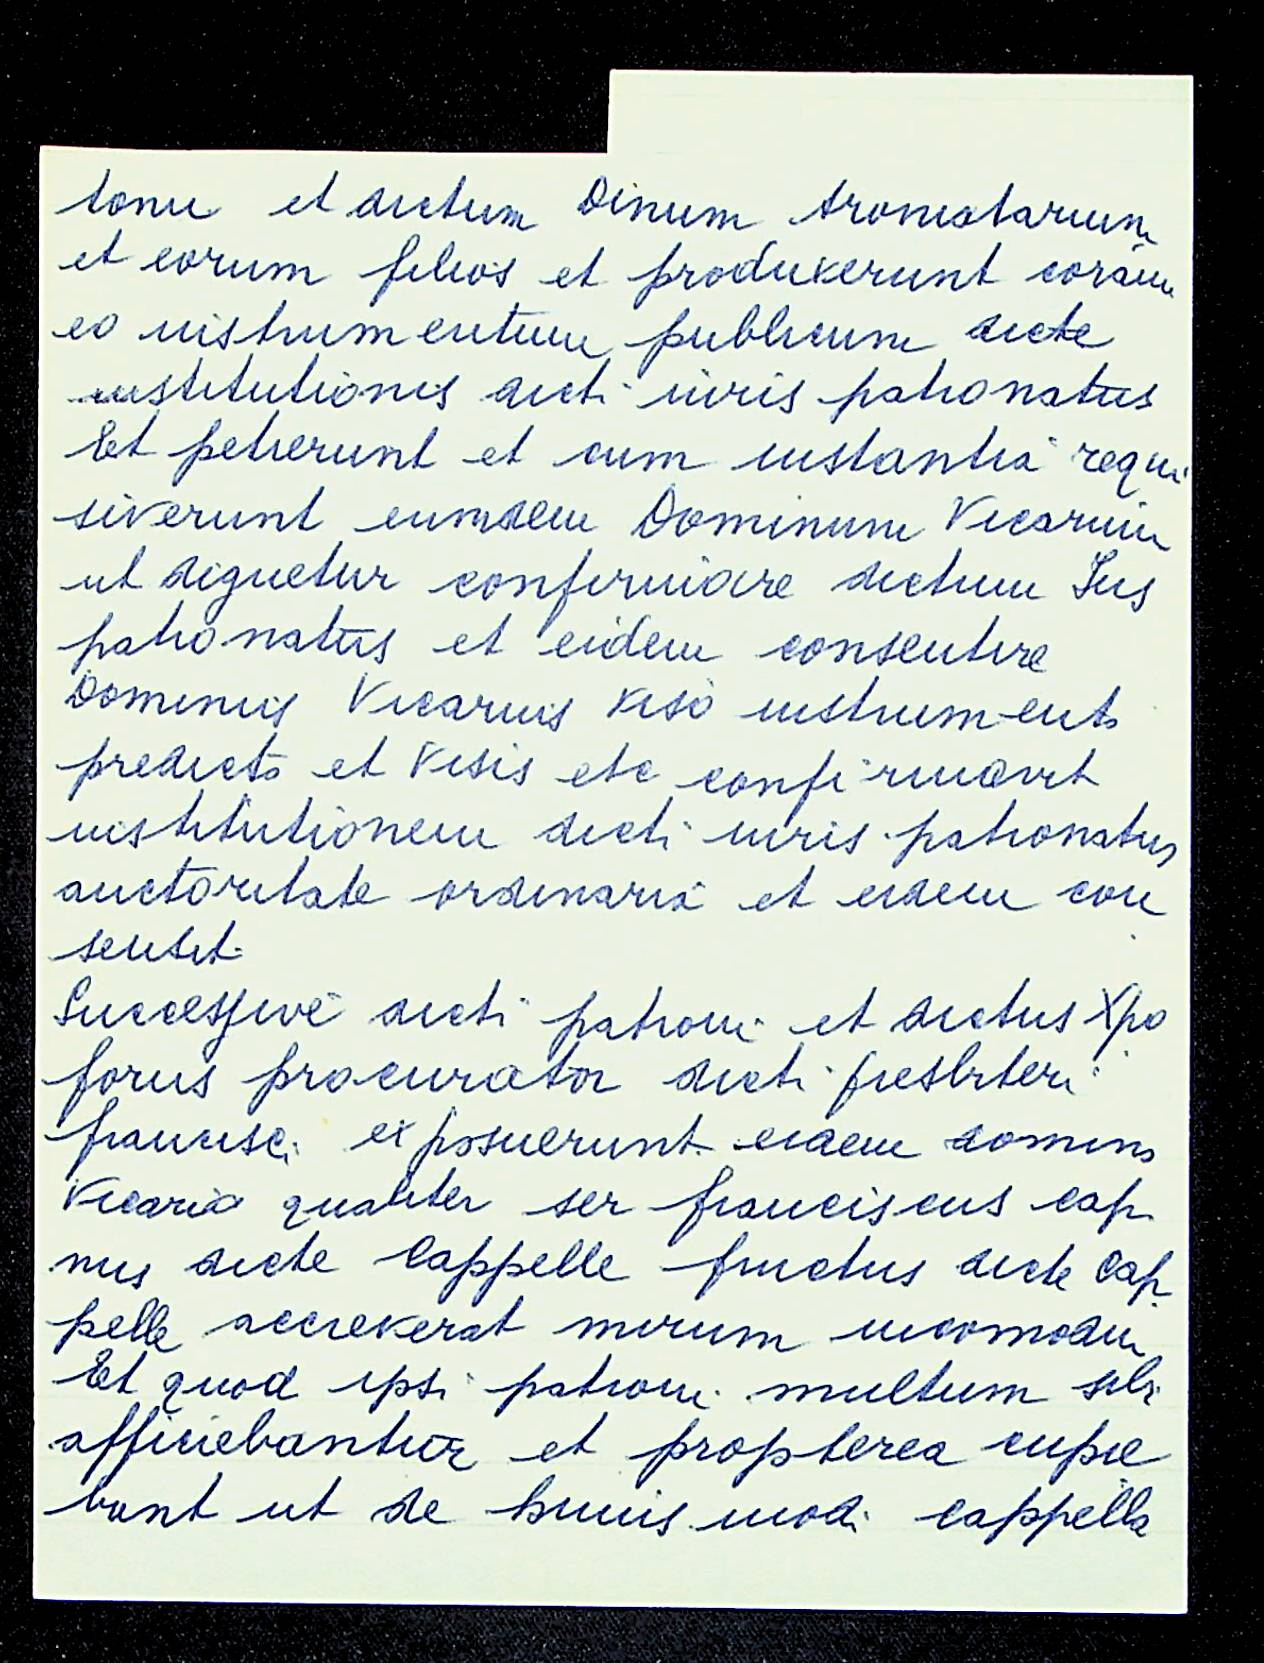 tonii et dictum Dinum Aromatarium
et eorum filios et produxerunt coram
eo instrumentum publicum dicte
institutionis dicti iuris patronatus
Et petierunt et cum instantia requi
siverunt eumdem Dominum Vicarium
ut dignetur confirmare dictum Jus
patronatus et eidem consentire
Dominus Vicarius viso instrumento
predicto et visis etc confirmavit
institutionem dicti iuris patronatus
auctoritate ordinaria et eidem con
sensit.
Successive dicti patroni et dictus Xpo
forus procurator dicti presbiteri
francisci exposuerunt eidem domino
Vicario qualiter ser franciscus cap
nus dicte Cappelle fructus dicte Cap
pelle accreverat mirum incomodum
Et quod ipsi patroni multum sibi
afficiebantur et propterea cupie
bant ut de huius modi cappella